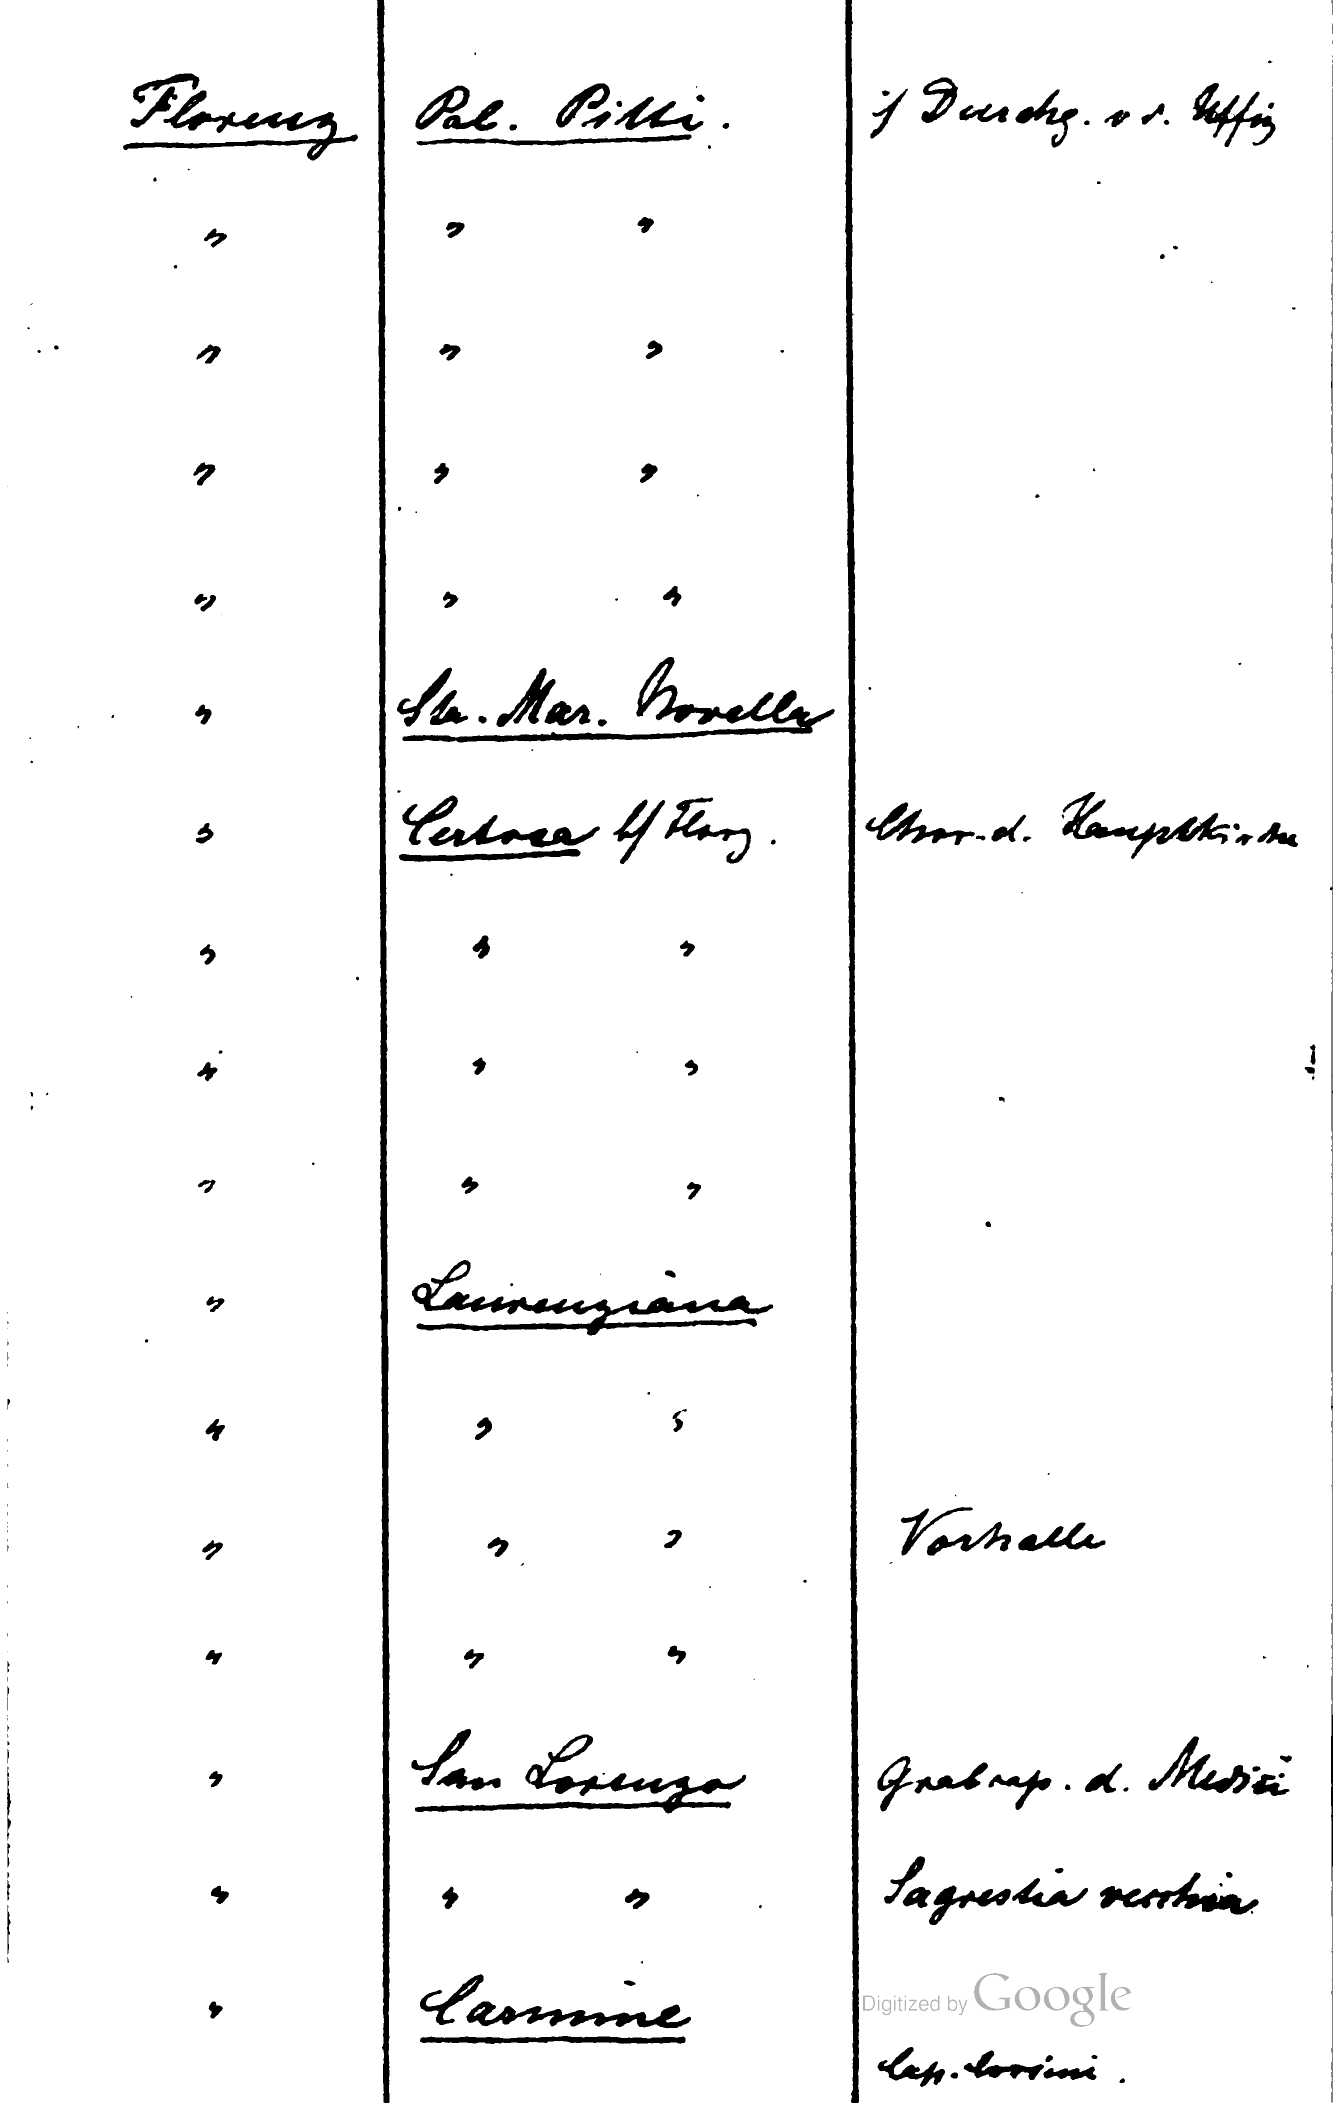 Florenz Pal. Pitti. i/ Durchg. v d. Uffiz
" " "
" " "
" " "
" " "
" Sta. Mar. Novella
" Certosa b/ Florz. Chor d. Hauptkirche
" " "
" " "
" " "
" Laurenziana
" " "
" " " Vorhalle
" " "
" San Lorenzo Grabcap. d. Medici
" " " Sagrestia vecchia
" Carmine
Digitized by Google
Cap. Corsini.